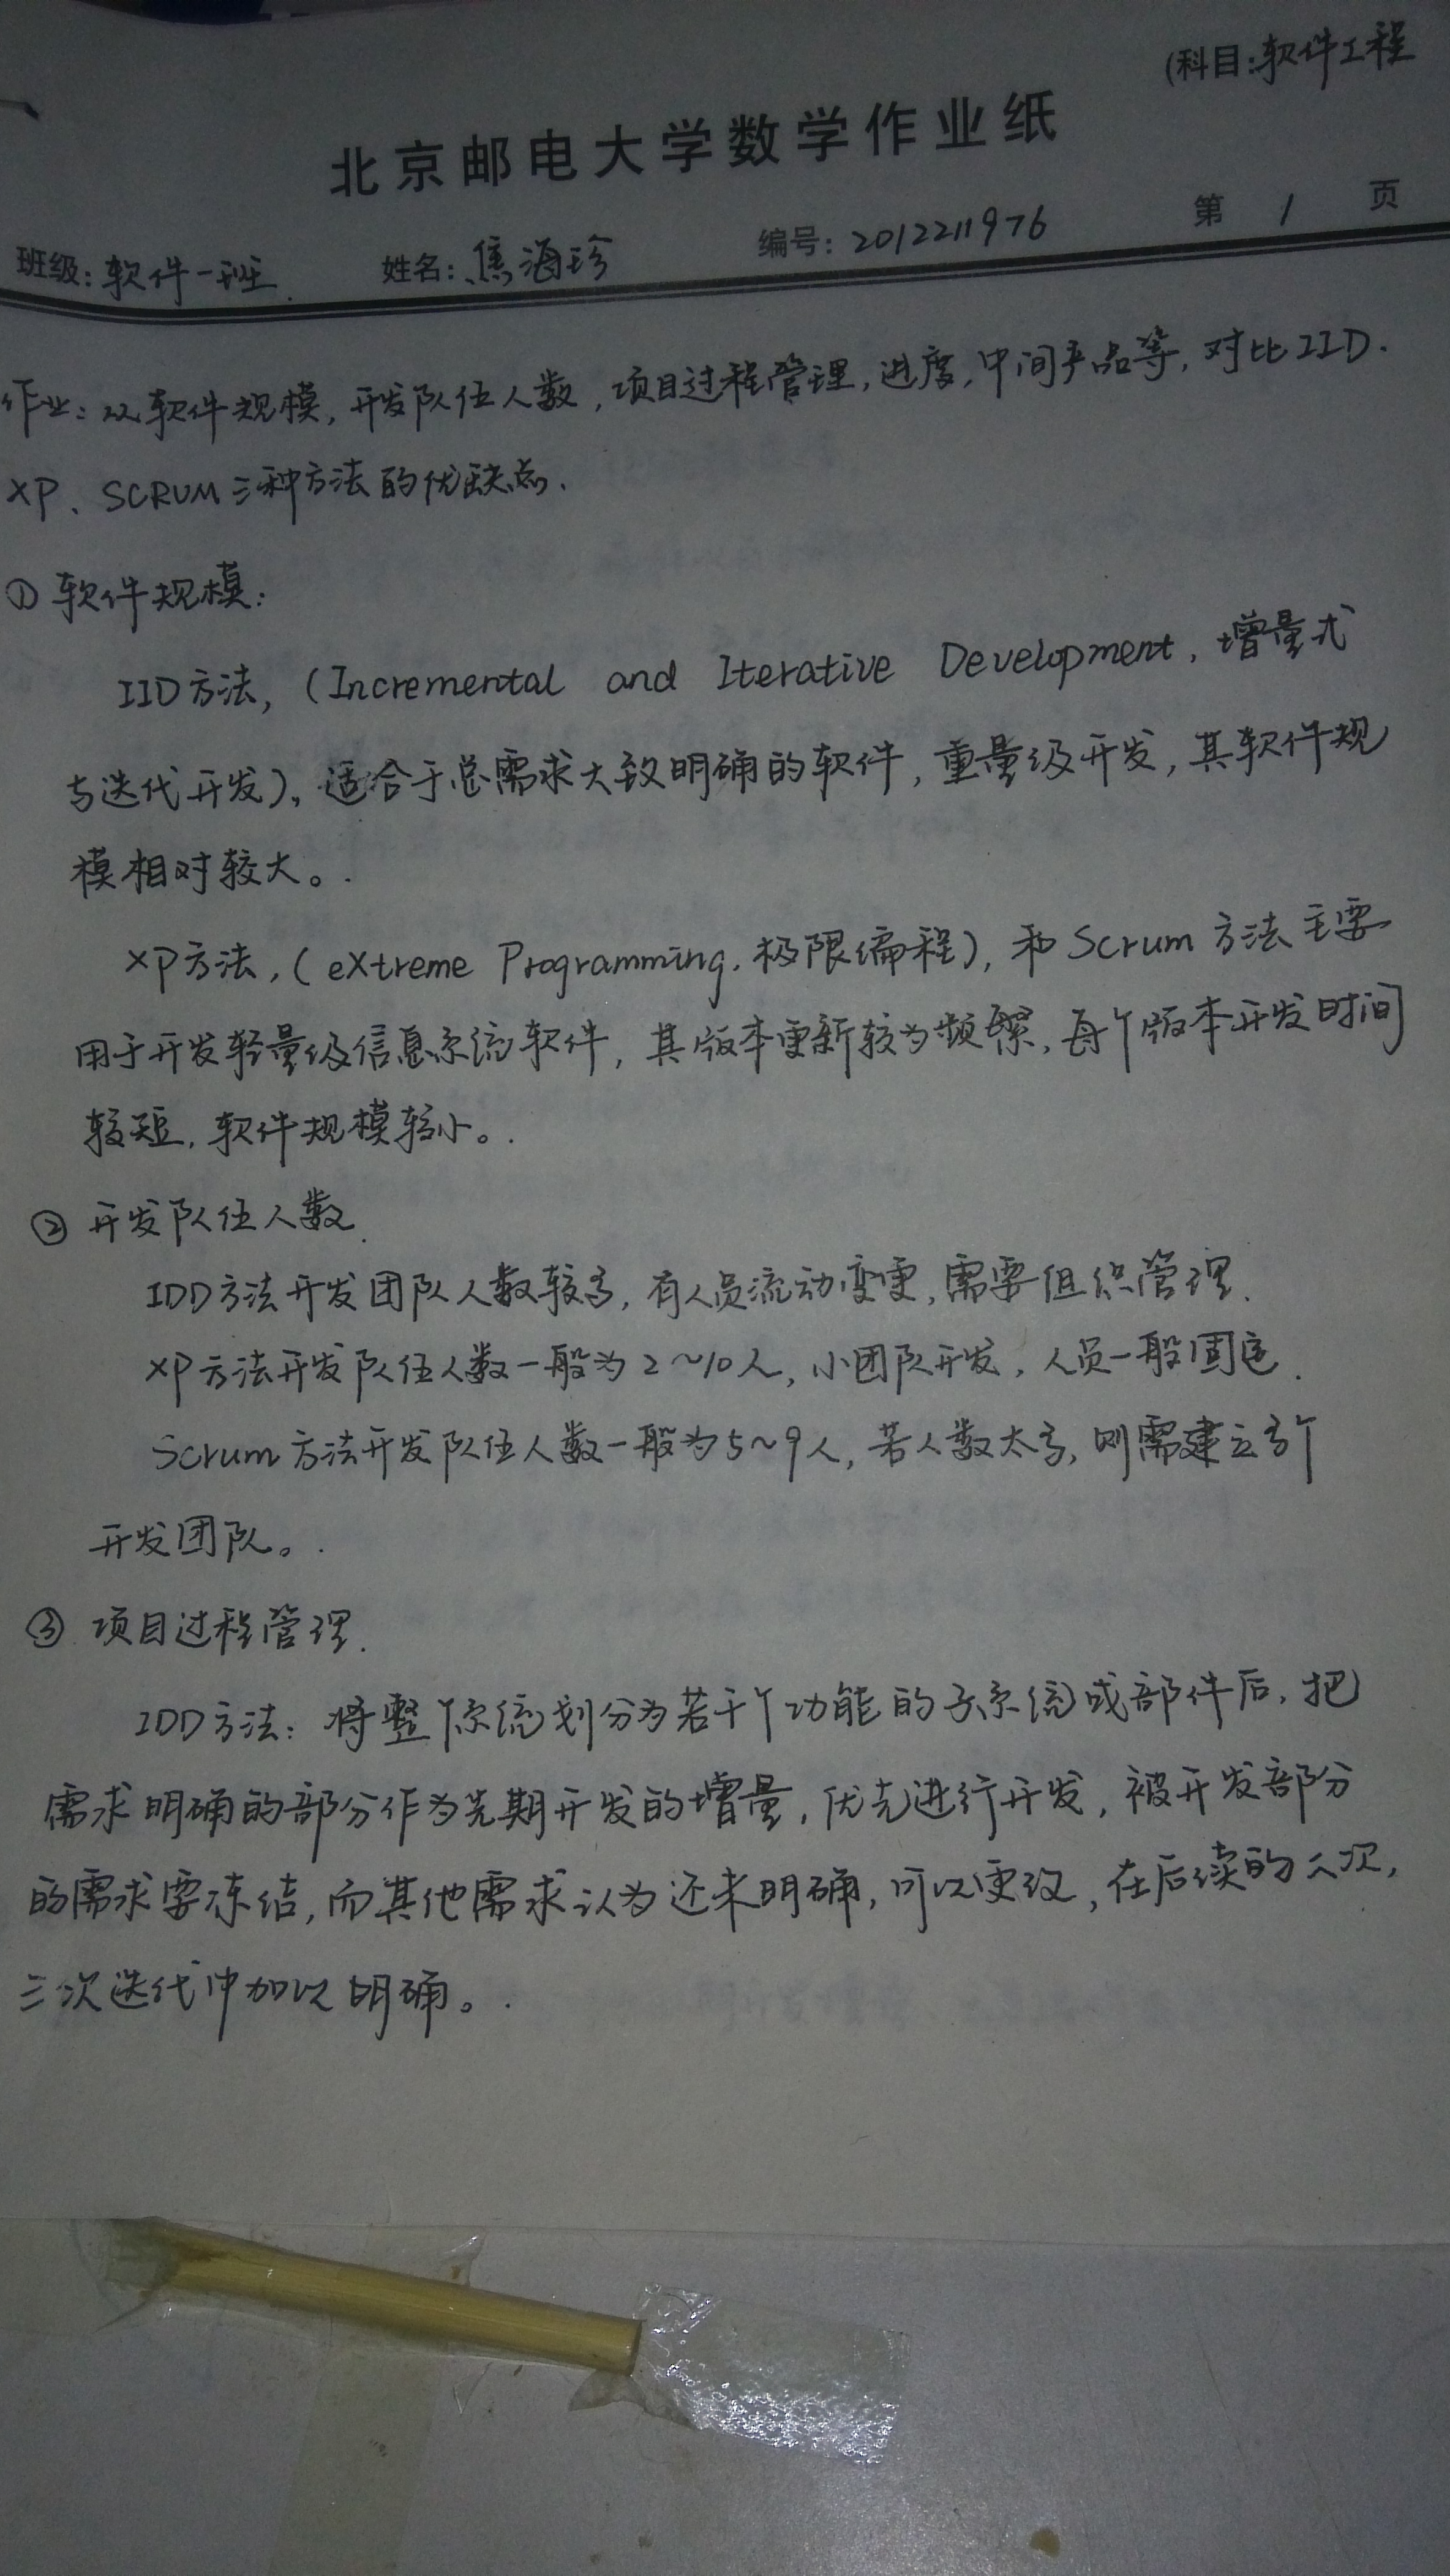 (科目:软件工程
北京邮电大学数学作业纸
班级:软件一班. 姓名:焦海珍 编号:2012211976 第 1 页
作业:以软件规模,开发队伍人数,项目过程管理,进度,中间产品等,对比IID.
XP、SCRUM三种方法的优缺点.
① 软件规模:
IID方法,(Incremental and Iterative Development,增量式
与迭代开发)。适合于总需求大致明确的软件,重量级开发,其软件规
模相对较大。
XP方法,(eXtreme Programming,极限编程),和Scrum方法主要
用于开发轻量级信息系统软件,其版本更新较为频繁,每个版本开发时间
较短,软件规模较小。
② 开发队伍人数.
IDD方法开发团队人数较多,有人员流动变更,需要组织管理.
XP方法开发队伍人数一般为2~10人,小团队开发,人员一般固定.
Scrum方法开发队伍人数一般为5~9人,若人数太多,则需建立多个
开发团队。
③ 项目过程管理.
IDD方法:将整个系统划分为若干个功能的子系统或部件后,把
需求明确的部分作为先期开发的增量,优先进行开发,被开发部分
的需求要冻结,而其他需求认为还未明确,可以更改,在后续的二次,
三次迭代中加以明确。